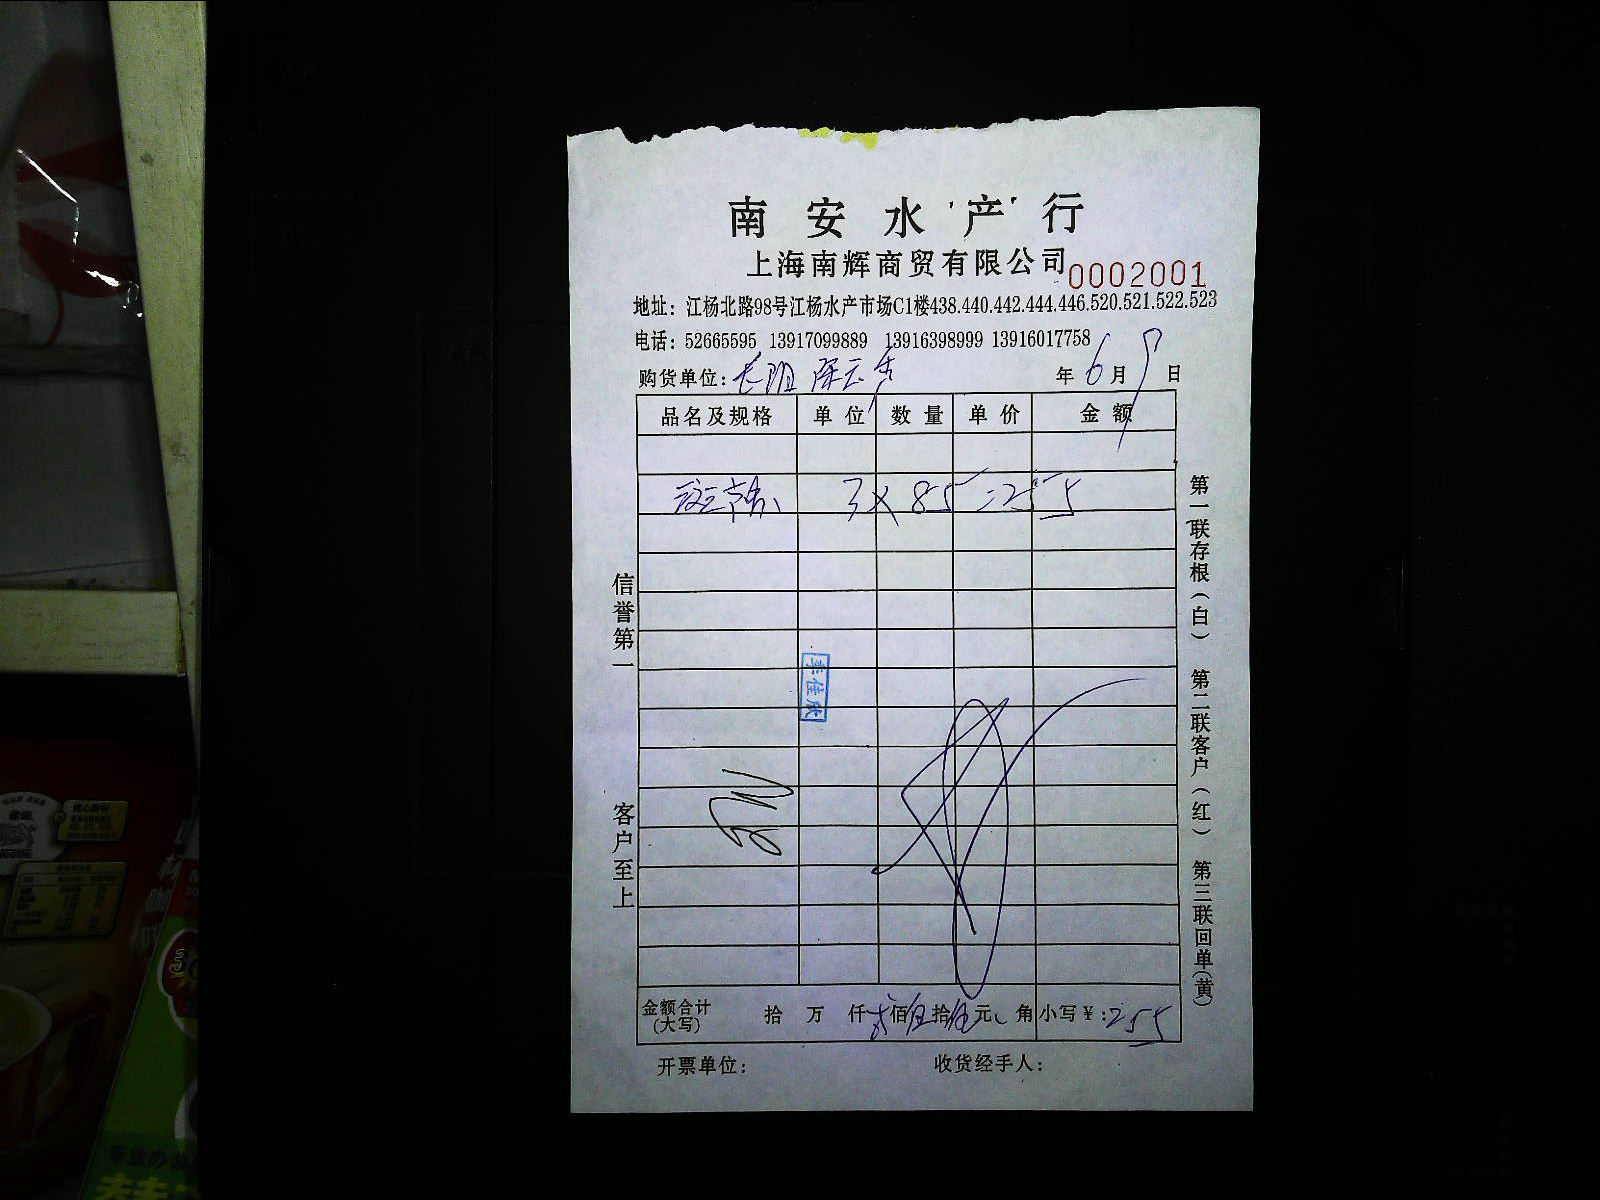 南安水产行
上海南辉商贸有限公司 0002001
地址：江杨北路98号江杨水产市场C1楼438.440.442.444.446.520.521.522.523
电话：52665595 13917099889 13916398999 13916017758
购货单位：长阳 年 6 月 9 日
品名及规格 单位 数量 单价 金额
斑节 3 X 85 = 255
信誉第一
客户至上
李佳欣
第一联存根（白） 第二联客户（红） 第三联回单（黄）
金额合计（大写） 拾 万 仟 贰佰伍拾伍元 角 小写￥：255
开票单位： 收货经手人：
专业办公